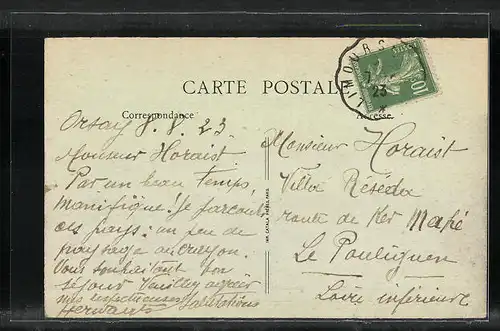 CARTE POSTALE
Correspondance
Adresse
LIMOURS
23
10
Orsay 8.8.23
Monsieur Horaist
Par un beau temps,
manifique! Je parcours
ces pays: un peu de
paysage
Vous souhaitant bon
séjour Veuillez agréer
mes respectueuses Salutations
Monsieur Horaist
Villa Réséda
route de Ker
Le Pouliguen
Loire inférieure